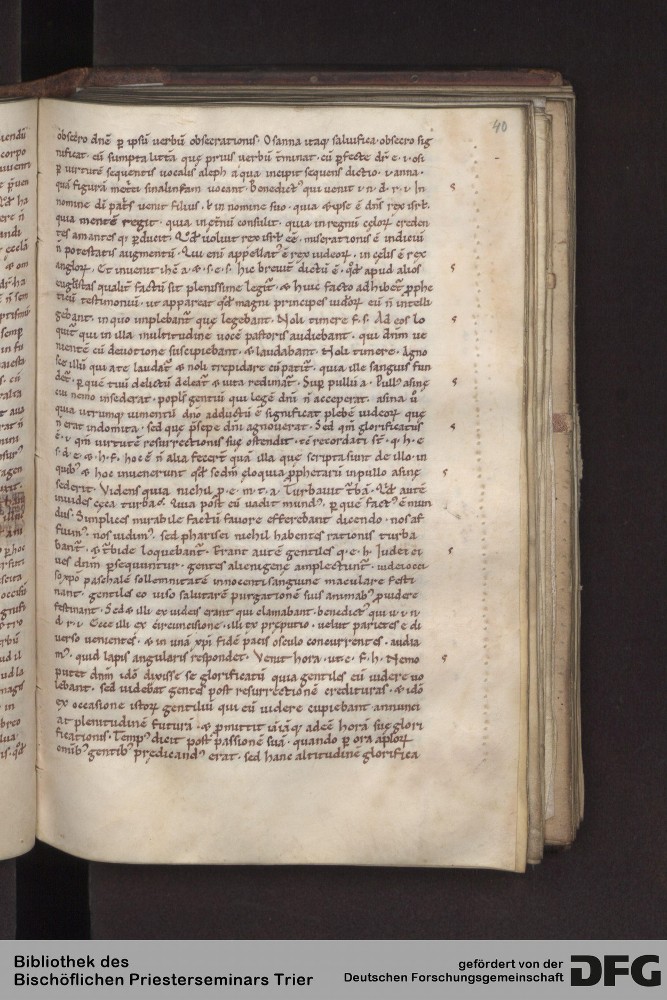 40
obsecro dnē p̄ ipsū verbū obsecrationis. Osanna itaq; salvifica. obsecro sig
nificat. cū sumpta littā quę prius verbū t̄minat. cū p̄fecte dr̄. e. i. osi
p̄ virtutē sequentis vocalis aleph a qua incipit sequens dictio. i anna.
quā figurā metrici sinalimfam vocant. Benedict' qui venit i n. d. r. i. In
nomine di pat̄s venit filius. & in nomine suo. quia & ipse ē dn̄s rex isrl̄.
quia mentē regit. quia in et̄nū consulit. quia in regnū cęlorū creden
tes amantes q; p̄ducit. Qd̄ voluit rex isrl̄ ēē. miserationis ē indiciū
n̄ potestatis augmentū. Qui enī appellat' ē rex iudeorū. in cęlis ē rex
anglorū. Et invenit ihē a. &. s. e. s. hic brevit̄ dictū ē. qd̄ apud alios
eugl̄istas qualit̄ factū sit plenissime legit̄. & huic facto adhibet̄ p̄phe
ticū testimoniū. ut appareat qd̄ magni principes iudeorū eū n̄ intelli
gebant. in quo implebant̄ quę legebant. Noli timere f. s. Ad eos lo
quit̄ qui in illa multitudine vocē pastoris audiebant. qui dn̄m ve
nientē cū devotione suscipiebant. & laudabant. Noli timere. Agno
sce illū qui a te laudat̄. & noli trepidare cū patit̄. quia ille sanguis fun
det̄. p̄ quē tuū delictū deleat̄ & vita redimat̄. Sup̄ pullū a. Pull' asinę
cui nemo insederat. popl̄s gentiū qui legē dn̄i n̄ acceperat. asina ū
quia utrumq; iumentū dn̄o adductū ē significat plebē iudeorū quę
n̄ erat indomita. sed quę p̄sepe dn̄i agnoverat. Sed qm̄ glorificatus
ē. i. qm̄ virtutē resurrectionis suę ostendit. tē recordati st̄. q. h. e
s. d. e. &. h. f. hoc ē n̄ alia fecert̄ quā illa quę scripta sunt de illo. in
quib' & hoc invenerunt qd̄ sedm̄ eloquia p̄phetarū in pullo asinę
sederit. Videns quia nichil p. e. m. t. a. Turbavit t̄bā. Qd̄ autē
invides cęca turba. Quia post eū vadit mund'. p̄ quē fact' ē mun
dus. Simplices mirabile factū favore efferebant dicendo. nos af
fuim'. nos vidim'. sed pharisei nichil habentes rationis turba
bant̄. & t̄bide loquebant̄. Erant autē gentiles q. e. h. Iudei ci
ves dn̄m p̄sequuntur. gentes alienigenę amplectunt̄. iudei occi
so xpō paschalē sollemnitatē innocenti sanguine maculare festi
nant. gentiles eo viso salutarē purgationē suis animab' p̄videre
festinant. Sed & illi ex iudeis erant qui clamabant. benedict' qui v. i. n
d. r. i. Ecce illi ex circuncisione. illi ex p̄putio. velut parietes e di
verso venientes. & in unā xpī fidē pacis osculo concurrentes. audia
m'. quid lapis angularis respondet. Venit hora. ut. c. f. h. Nemo
putet dn̄m idō dixisse se glorificatū quia gentiles eū videre vo
lebant. sed videbat gentes post resurrectionē credituras. & idō
ex occasione istorū gentiliū qui eū videre cupiebant annunci
at plenitudinē futurā. & p̄mittit iā iāq; adeē horā suę glori
ficationis. Temp' dicit post passionē suā. quando p̄ ora aplorū
omīb' gentib' predicand' erat. sed hanc altitudinē glorifica
Bibliothek des
Bischöflichen Priesterseminars Trier
gefördert von der
Deutschen Forschungsgemeinschaft
DFG